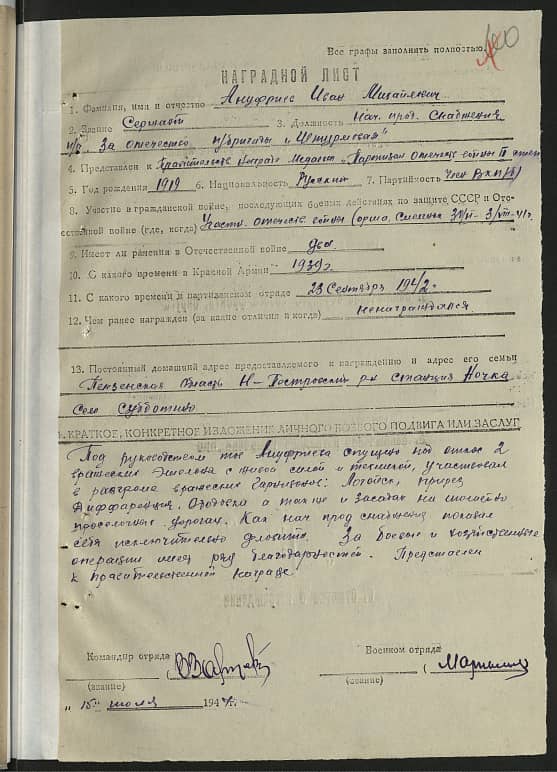 Все графы заполнять полностью.
НАГРАДНОЙ ЛИСТ
1. Фамилия, имя и отчество Ануфриев Иван Михайлович
2. Звание Сержант 3. Должность Нач. прод. Снабжения
п/о „За отечество" п/бригады „Штурмовая"
4. Представлен к Правительств. награде Медали „Партизан отечеств. войны II степ.
5. Год рождения 1919 6. Национальность Русский 7. Партийность Член ВКП/б/
8. Участие в гражданской войне, последующих боевых действиях по защите СССР и Оте-
чественной войне (где, когда) Участв. отечеств. войны (Орша, Смоленск
9. Имеет ли ранения в Отечественной войне
10. С какого времени в Красной Армии 1939 г.
11. С какого времени в партизанском отряде 23 Сентября 1942 г.
12. Чем ранее награжден (за какие отличия и когда) ненаграждался
13. Постоянный домашний адрес предоставляемого к награждению и адрес его семьи
Пензенская область Н- р-н станция Ночка
Село Субботино
КРАТКОЕ, КОНКРЕТНОЕ ИЗЛОЖЕНИЕ ЛИЧНОГО БОЕВОГО ПОДВИГА ИЛИ ЗАСЛУГ
Под руководством тов Ануфриева спущено под откос 2
вражеских эшелона с живой силой и техникой, участвовал
в разгроме вражеских гарнизонов: Логойск,
а также и засадах на шоссейно
проселочных дорогах. Как нач прод снабжения показал
себя исключительно За боевые и хозяйственные
операции имеет ряд благодарностей. Представлен
к правительственной награде
Командир отряда
Военком отряда
(звание)
(звание)
„ 15" июля 1944 г.